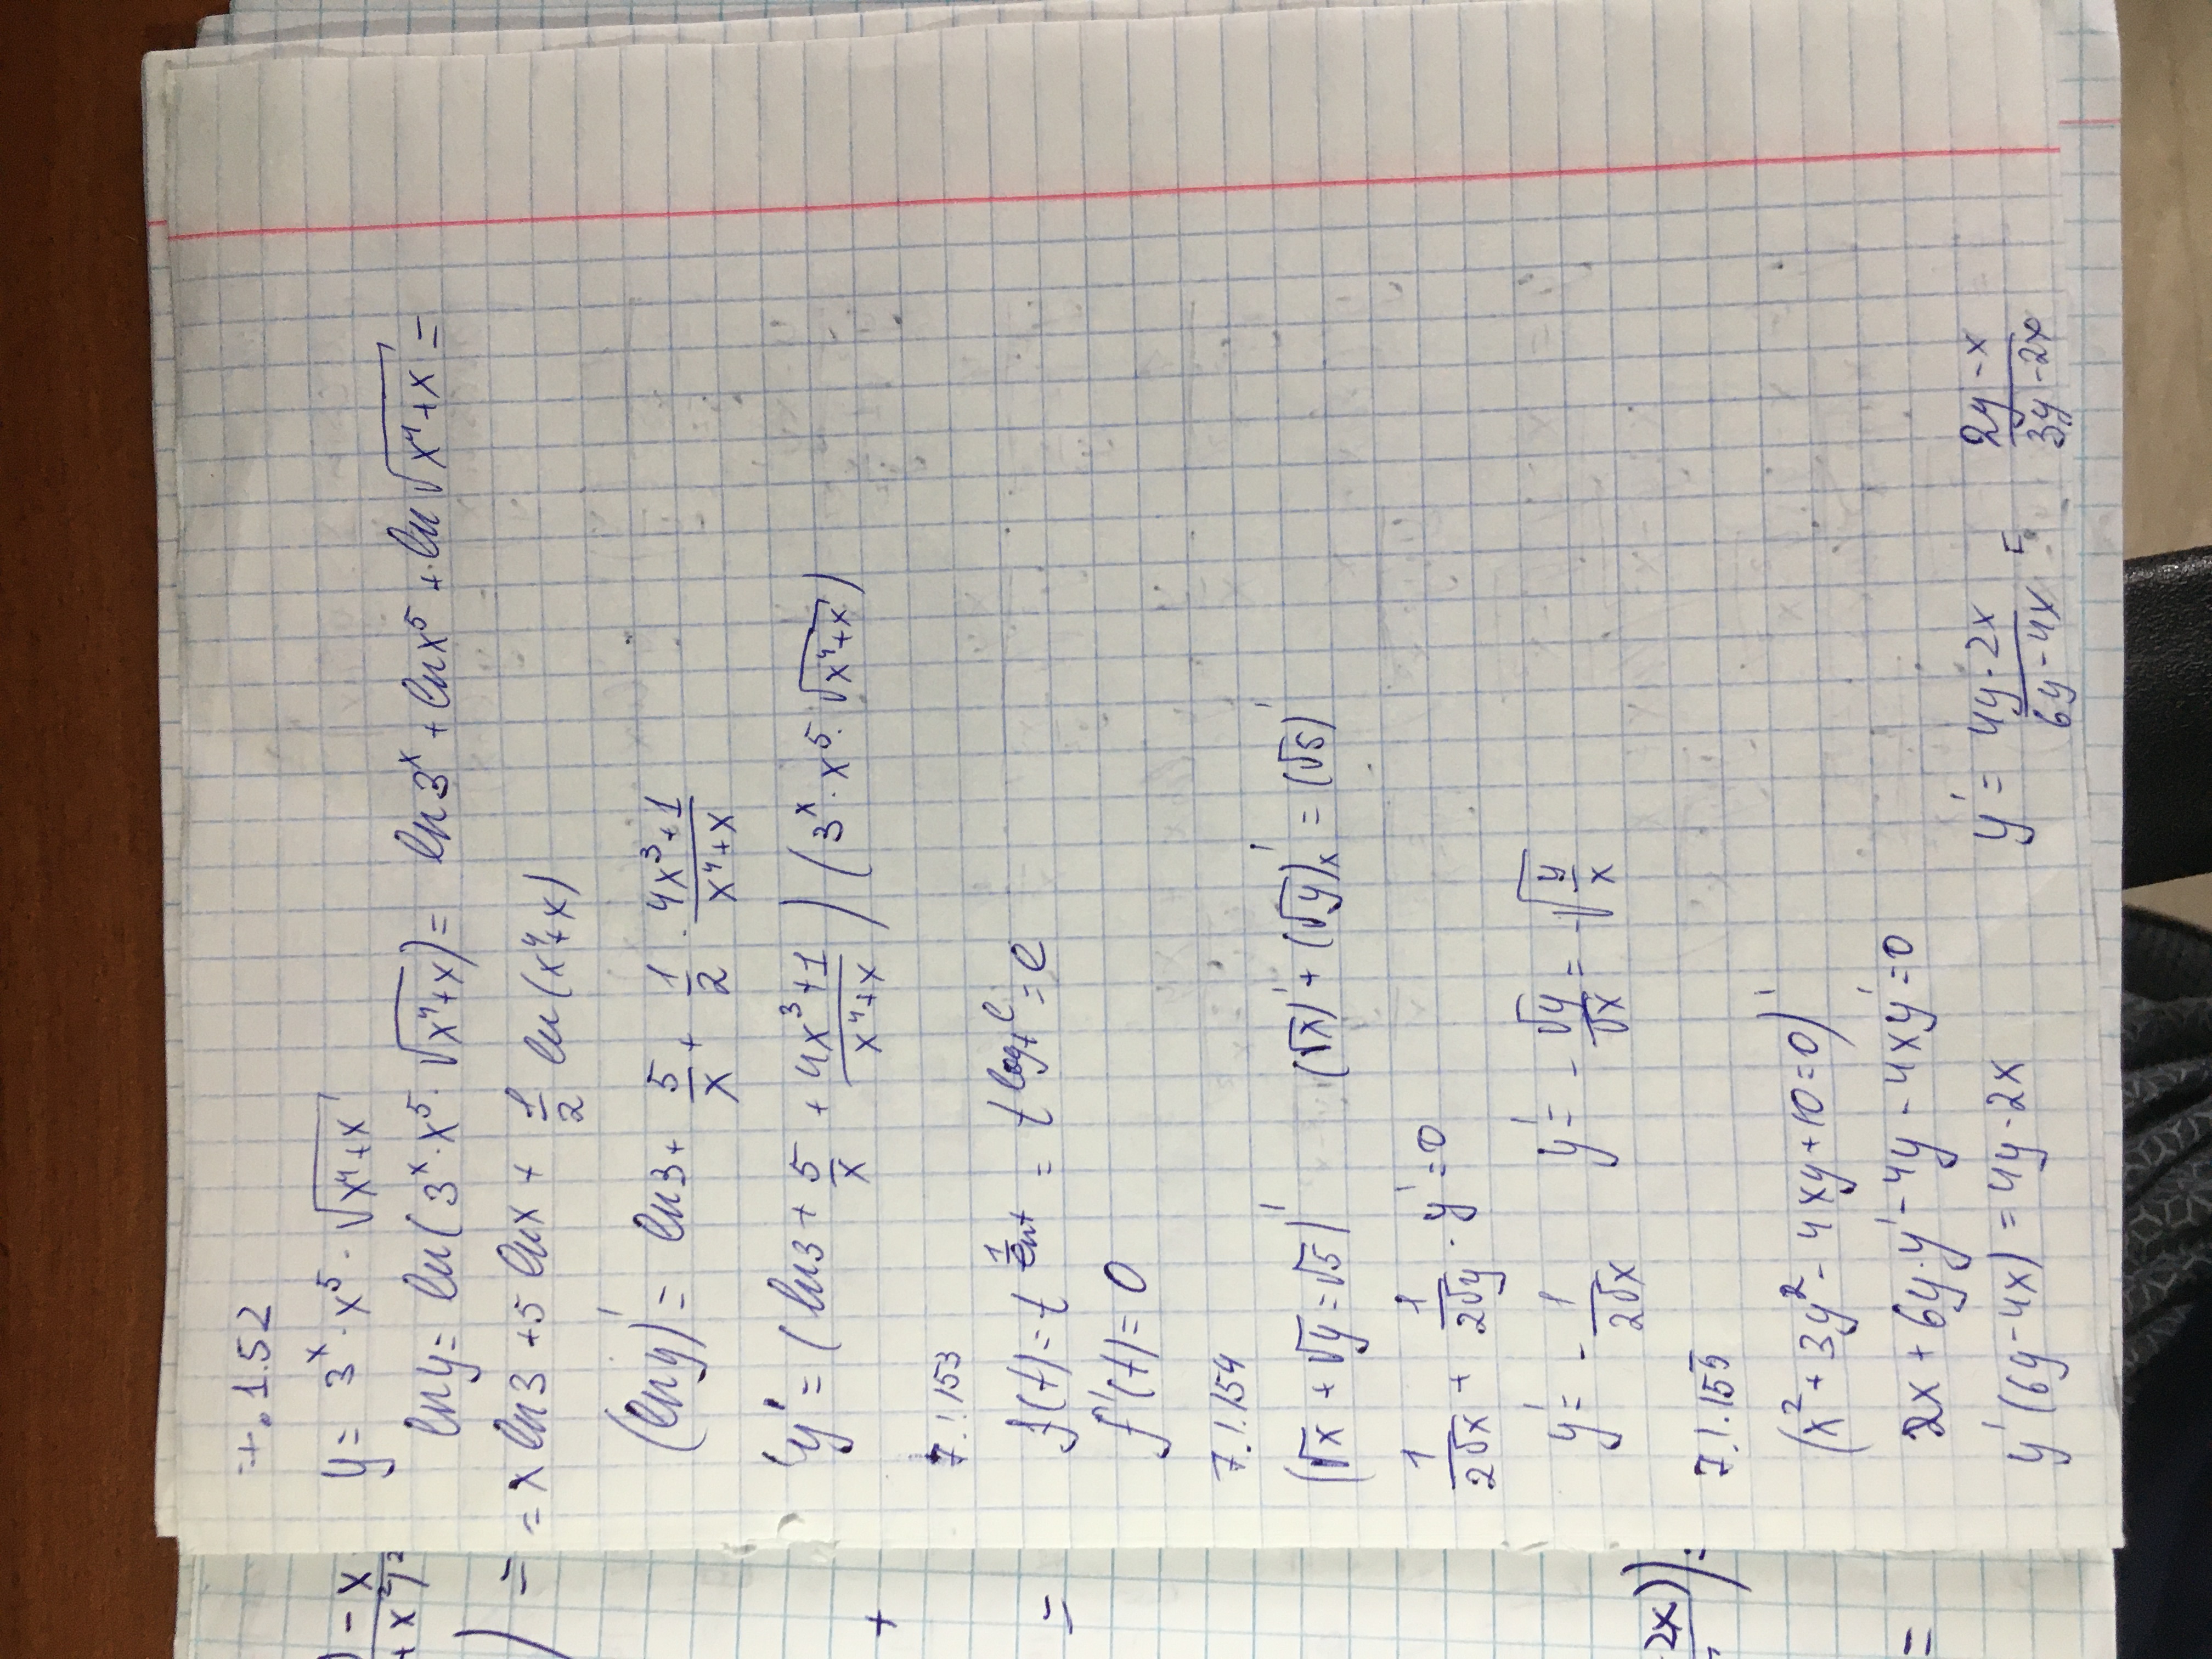 7.1.52
y = 3^x · x^5 · √(x^4+x)
ln y = ln(3^x · x^5 · √(x^4+x)) = ln 3^x + ln x^5 + ln √(x^4+x) =
= x ln 3 + 5 ln x + 1/2 ln(x^4+x)
(ln y)' = ln 3 + 5/x + 1/2 · (4x^3+1)/(x^4+x)
y' = (ln 3 + 5/x + (4x^3+1)/(x^4+x)) (3^x · x^5 · √(x^4+x))
7.1.153
f(t) = t^(1/ln t) = t^(log_t e) = e
f'(t) = 0
7.1.154
(√x + √y = √5)' (√x)' + (√y)'_x = (√5)'
1/(2√x) + 1/(2√y) · y' = 0
y' = - 1/(2√x) y' = - √y/√x = -√(y/x)
7.1.155
(x^2 + 3y^2 - 4xy + 10 = 0)'
2x + 6y·y' - 4y - 4xy' = 0
y'(6y - 4x) = 4y - 2x y' = (4y - 2x)/(6y - 4x) = (2y - x)/(3y - 2x)